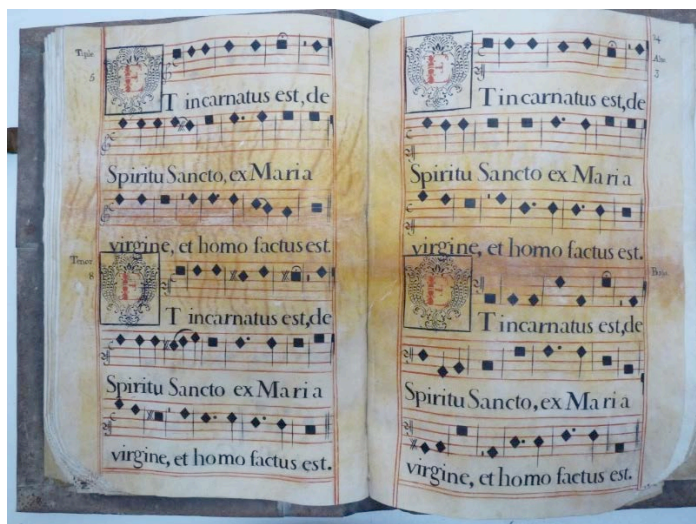 Tiple
5
T incarnatus est, de
Spiritu Sancto, ex Maria
virgine, et homo factus est.
Tenor
8
T incarnatus est, de
Spiritu Sancto ex Maria
virgine, et homo factus est.
14
Alto
3
T incarnatus est, de
Spiritu Sancto ex Maria
virgine, et homo factus est.
T incarnatus est, de
Spiritu Sancto, ex Maria
virgine, et homo factus est.